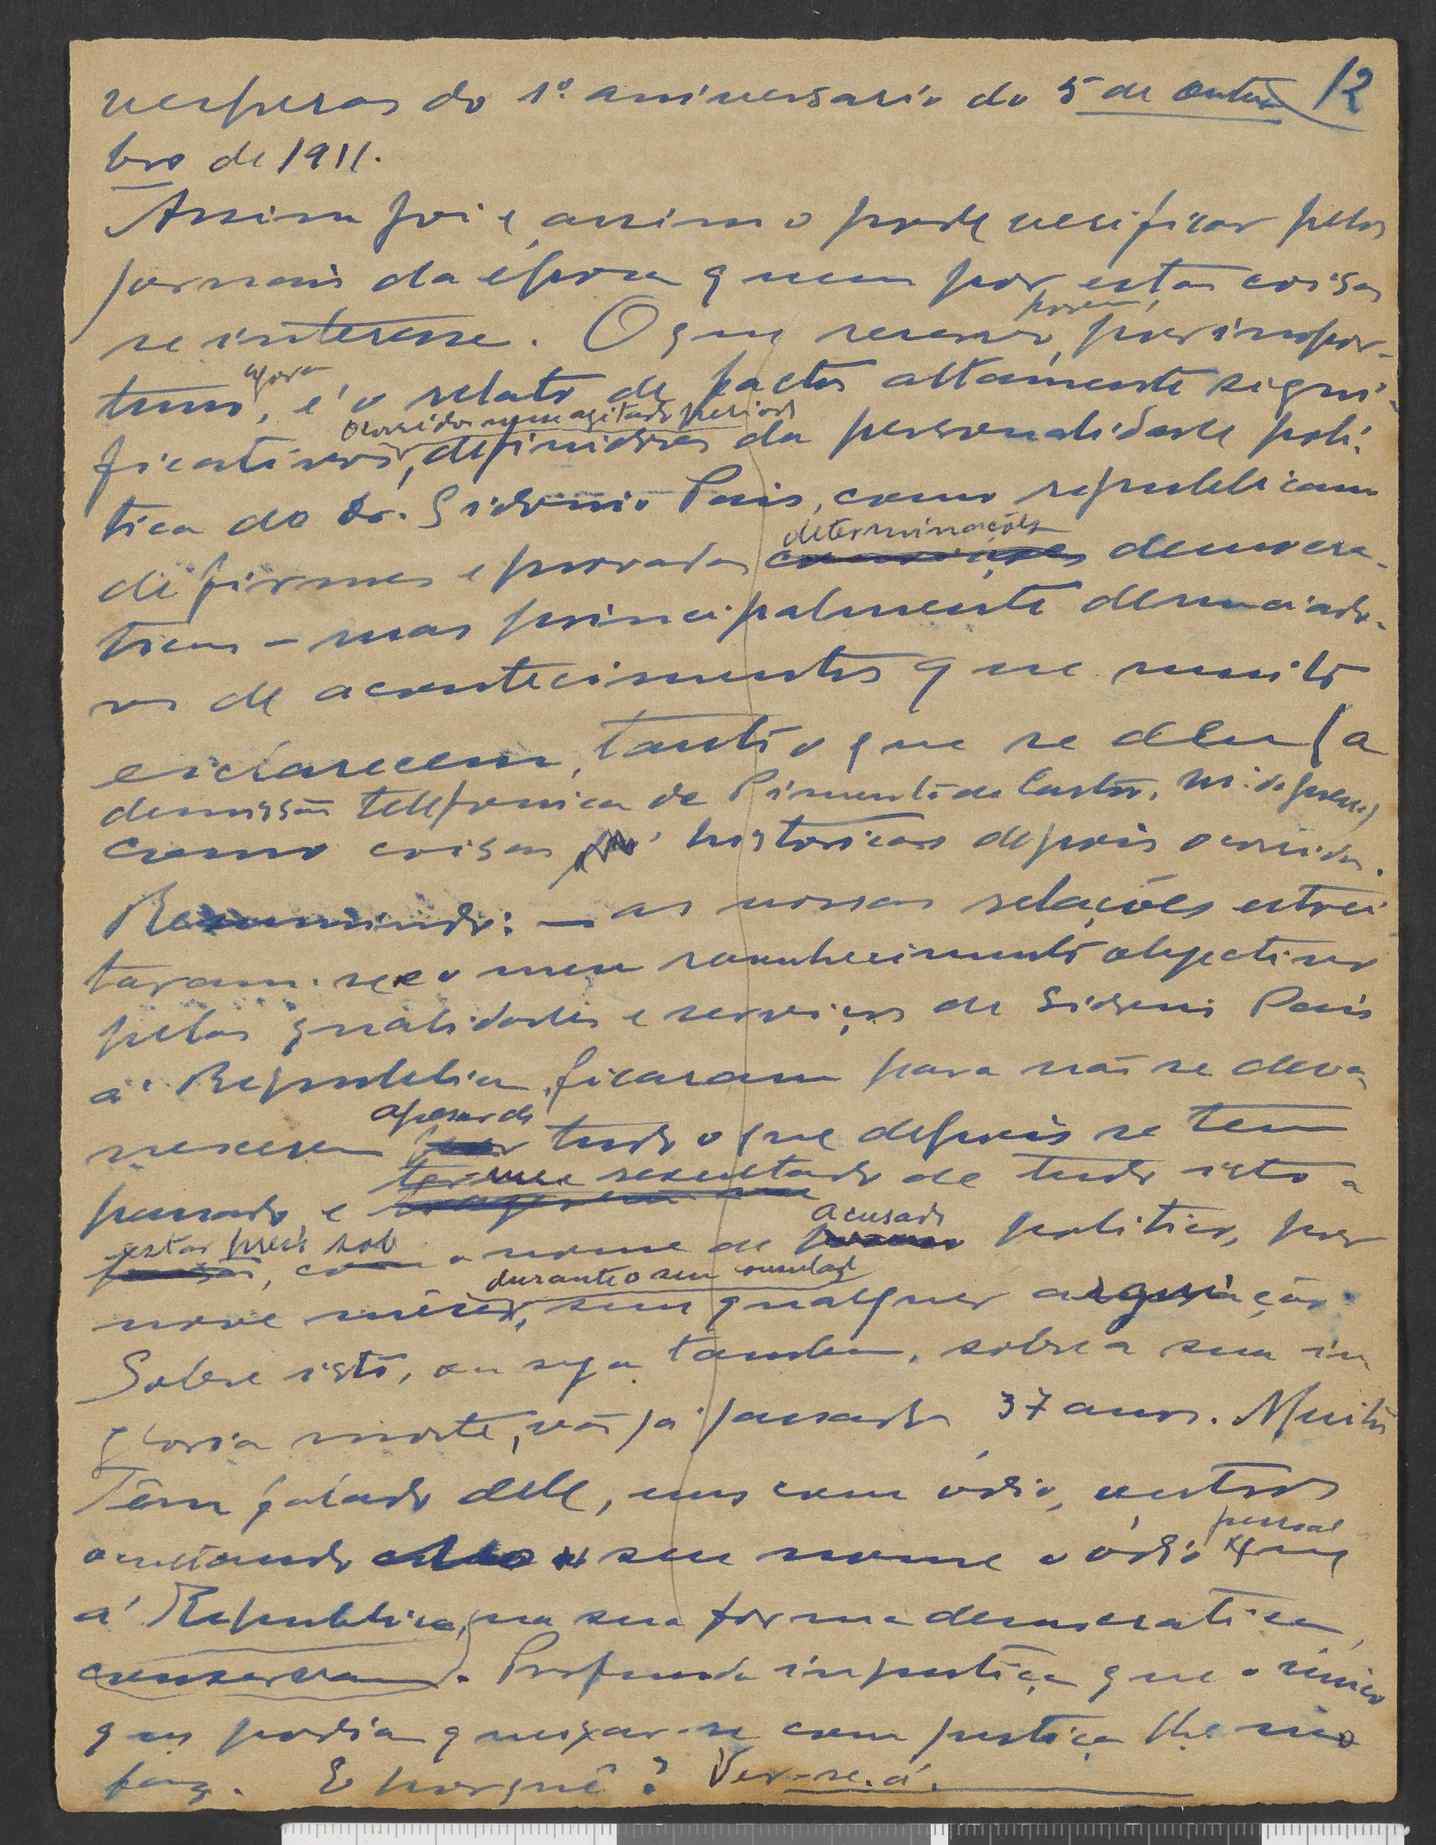 vesperas do 1º aniversario do 5 de Outu- 12
bro de 1911.
Assim foi e assim o pode verificar pelos
jornais da época quem por estas coisas
se interesse. O que reservo, porem, por inopor-
tuno, agora, é o relato de factos altamente signi-
ficativos, ocorridos num agitado periodo, definidores da personalidade poli-
tica do Dr. Sidonio Pais, como republicano
de firmes e provadas determinações democra-
ticas - mas principalmente denunciado-
ras de acontecimentos que muito
esclarecem, tanto o que se deu (a
demissão telefonica de Pimenta de Castro, m. da guerra)
como coisas historicas depois ocorridas.
Resumindo: — as nossas relações estrei-
taram-se e o meu reconhecimento objectivo
pelas qualidades e serviços de Sidonio Pais
á Republica, ficaram para não se desva-
necerem apesar de tudo o que depois se tem
passado, e ter-me resultado de tudo isto a
estar preso sob o nome de acusado politico, por
nove mêses, durante o seu consulado, sem qualquer arguição.
Sobre isto, ou seja tambem, sobre a sua in-
gloria morte, vão já passados 37 anos. Muitos
Têm falado dele, uns com ódio, outros
ocultando seu nome o ódio pessoal que
á Republica, na sua forma democratica,
conservam. Profunda injustiça que o unico
que podia queixar-se com justiça lhe não
faz. E porquê? Ver-se-á.